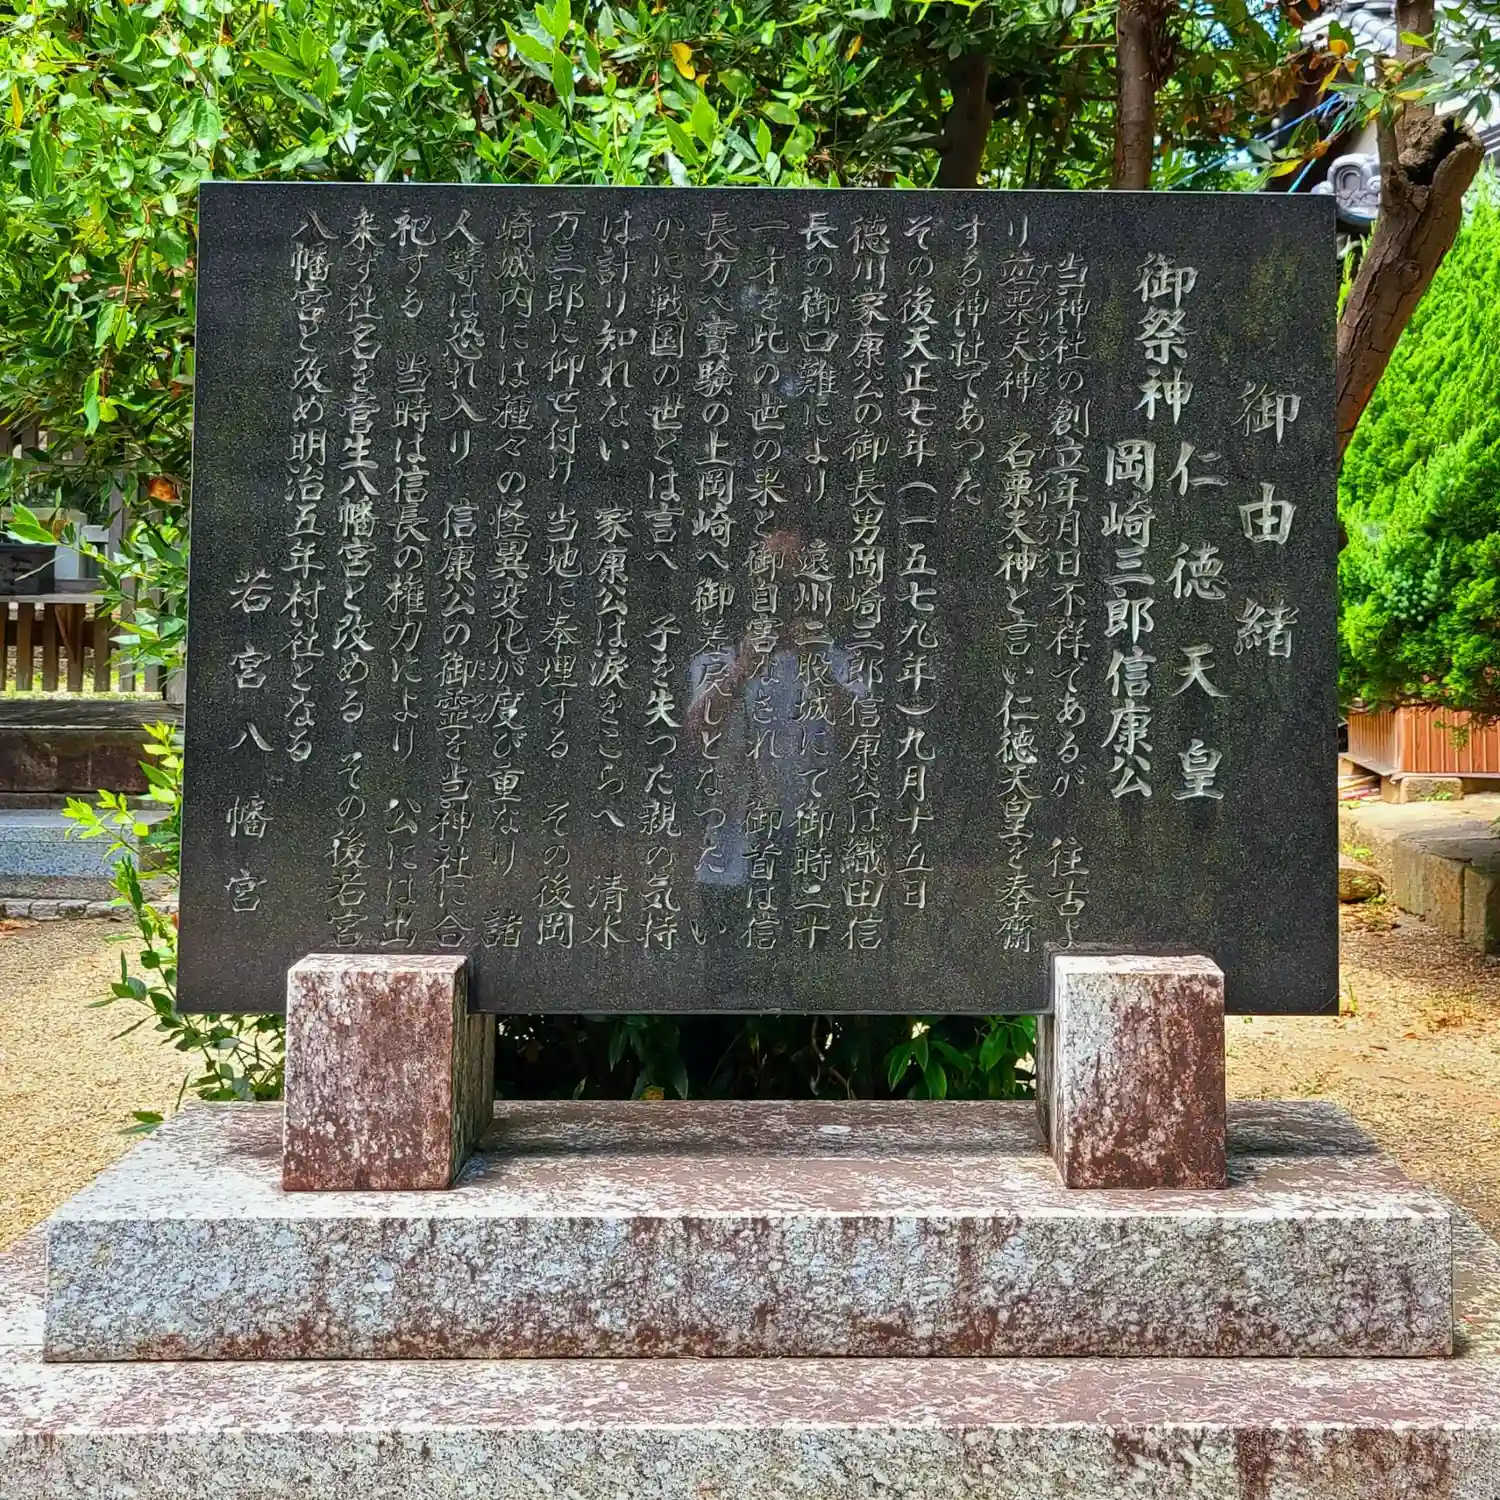 御由緒
御祭神 仁徳天皇
岡崎三郎信康公
当神社の創立年月日不祥であるが 往古よ
り 栗天神 名栗天神と言い仁徳天皇を奉齋
する神社であつた
その後天正七年(一五七九年)九月十五日
徳川家康公の御長男岡崎三郎信康公は織田信
長の御口難により 遠州二股城にて御時二十
一才を此の世の果と御自害なされ 御首は信
長方へ實験の上岡崎へ御差戻しとなつた い
かに戦国の世とは言へ 子を失つた親の気持
は計り知れない 家康公は涙をこらへ 清水
万三郎に仰せ付け 当地に奉埋する その後岡
崎城内には種々の怪異変化が度び重なり 諸
人等は恐れ入り 信康公の御霊を当神社に合
祀する 当時は信長の権力により 公には出
来ず社名を 生八幡宮と改める その後若宮
八幡宮と改め明治五年村社となる
若宮八幡宮